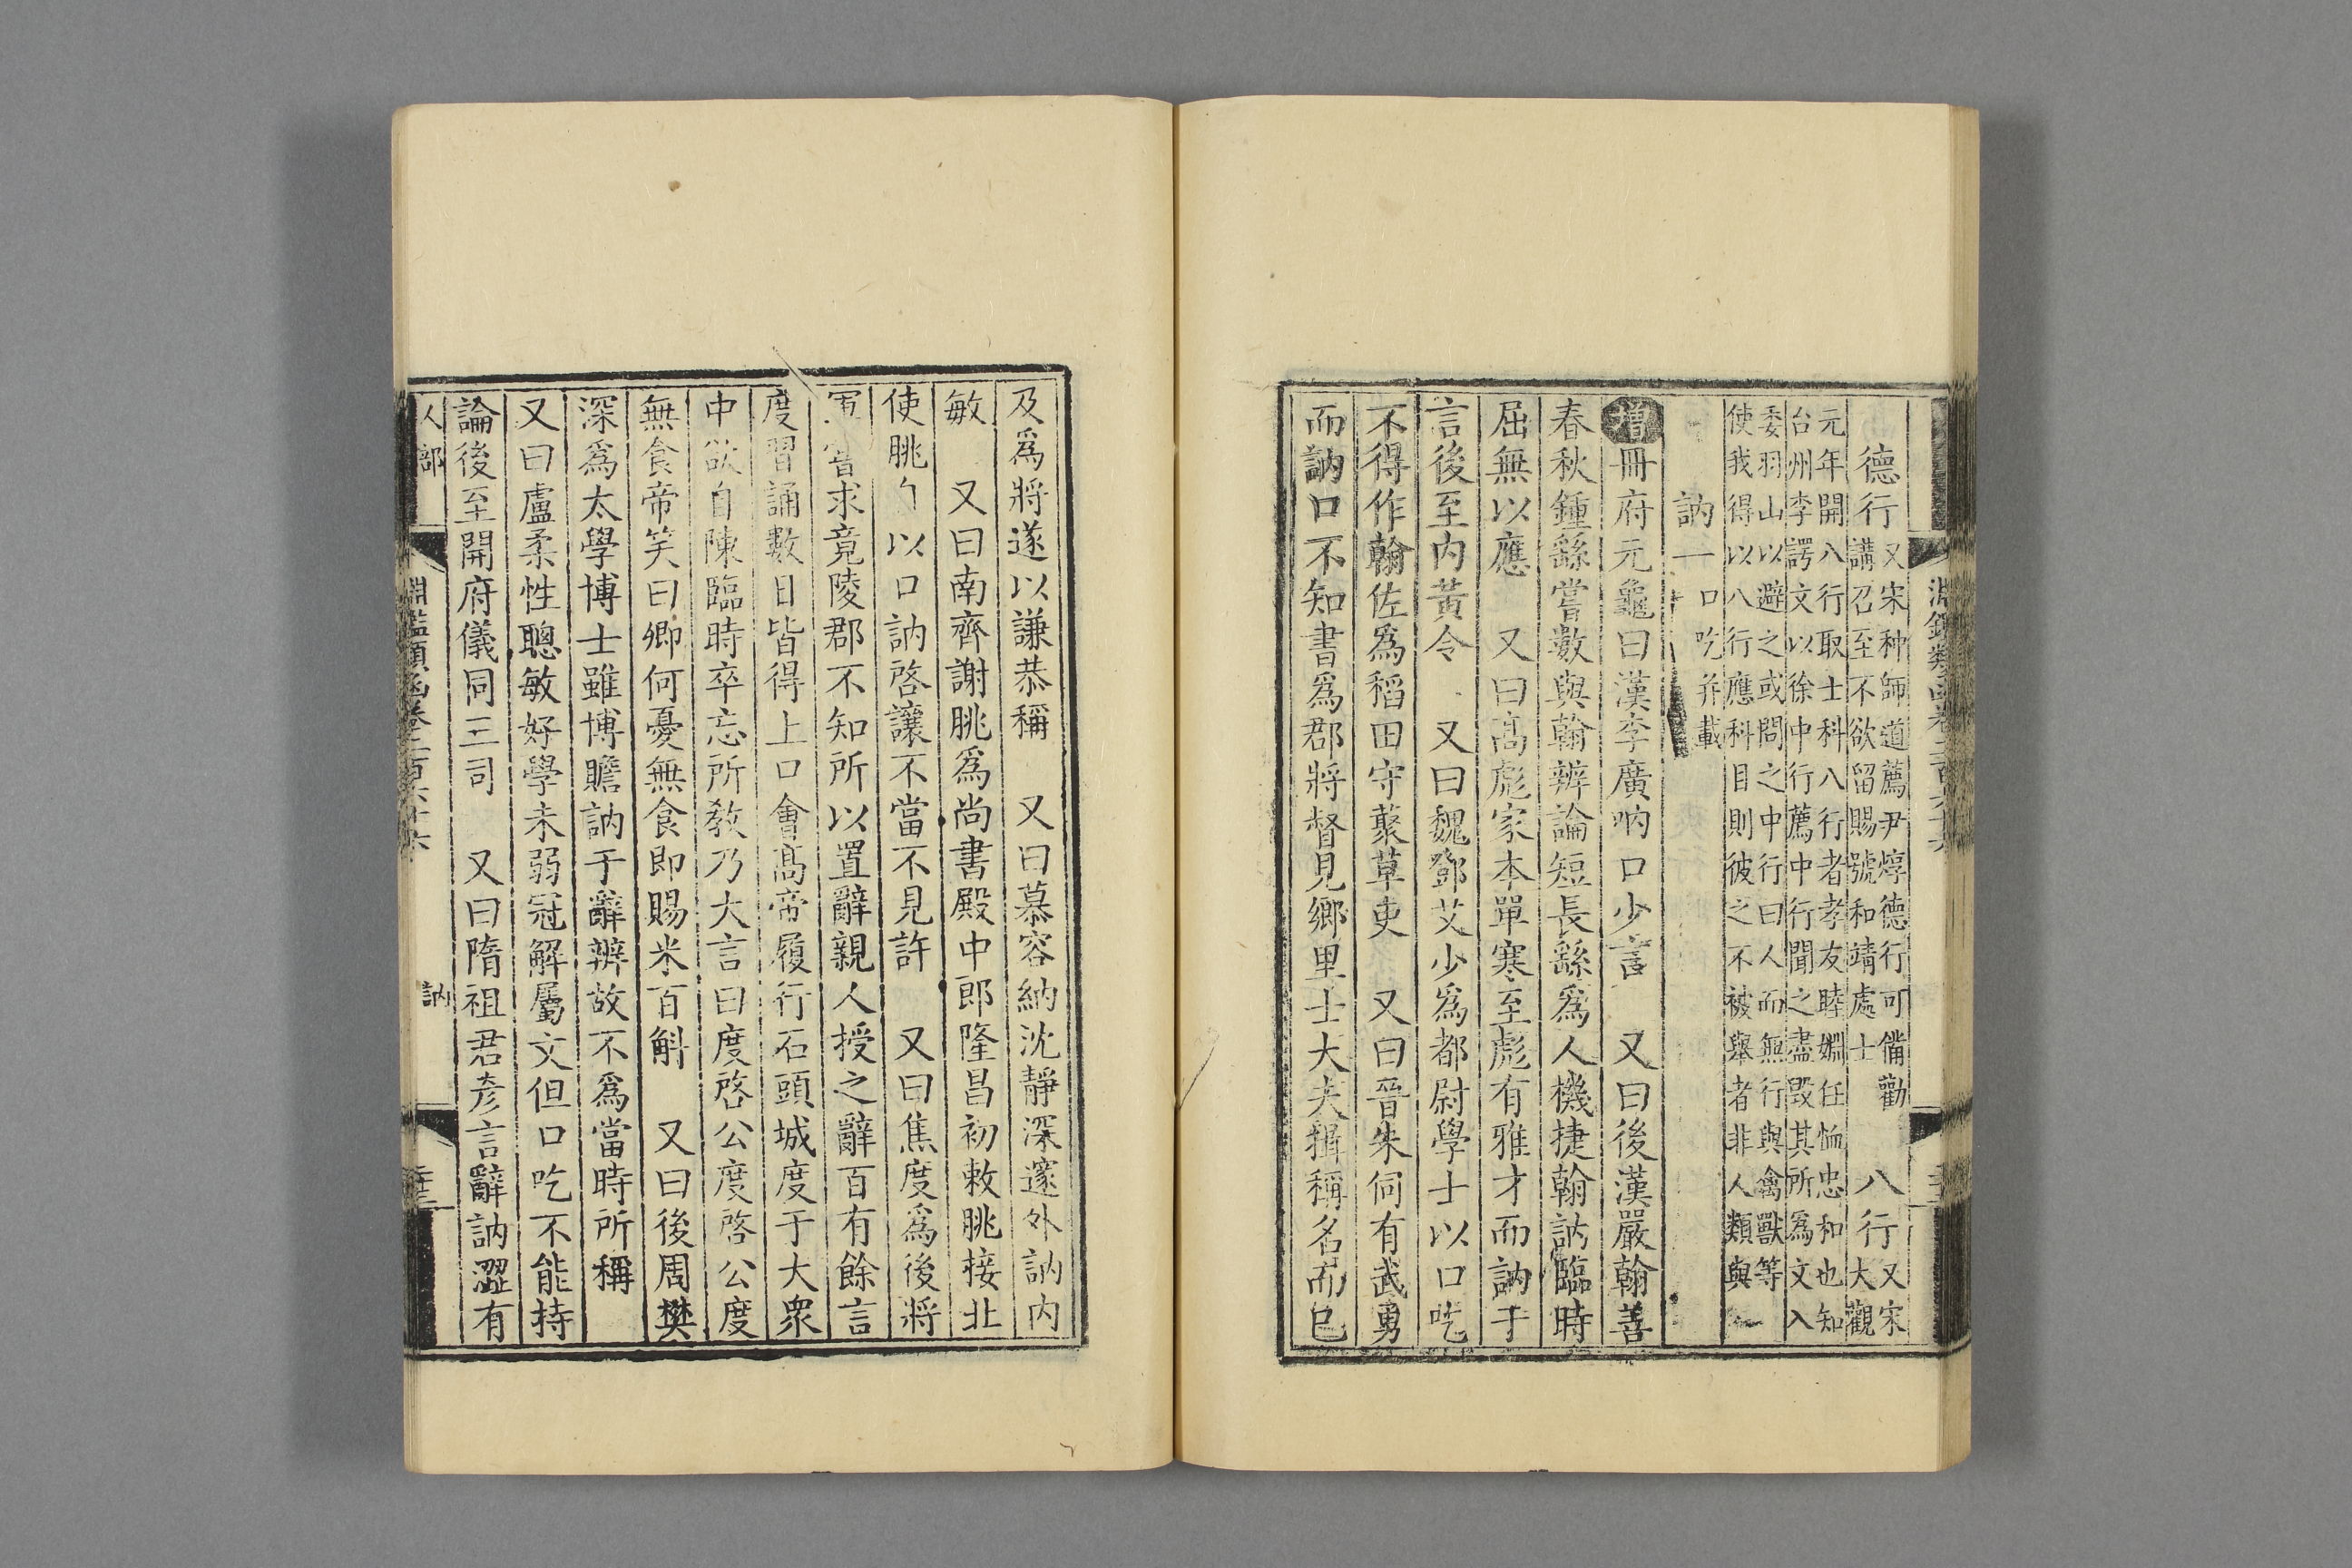 德行
又宋种師道薦尹焞德行可備勸
講召至不欲留賜號和靖處士
八行
又宋
大觀
元年開八行取士科八行者孝友睦婣任恤忠和也知
台州李諤文以徐中行薦中行聞之盡毀其所爲文入
委羽山以避之或問之中行曰人而無行與禽獸等
使我得以八行應科目則彼之不被舉者非人類與
訥一
口吃并載
增冊府元龜曰漢李廣吶口少言　又曰後漢嚴翰善
春秋鍾繇嘗數與翰辨論短長繇爲人機捷翰訥臨時
屈無以應　又曰高彪家本單寒至彪有雅才而訥于
言後至內黃令　又曰魏鄧艾少爲都尉學士以口吃
不得作翰佐爲稻田守藂草吏　又曰晉朱伺有武勇
而訥口不知書爲郡將督見鄉里士大夫揖稱名而已
及爲將遂以謙恭稱　又曰慕容納沈靜深邃外訥內
敏　又曰南齊謝朓爲尚書殿中郎隆昌初敕朓接北
使朓以口訥啓讓不當不見許　又曰焦度爲後將
軍嘗求竟陵郡不知所以置辭親人授之辭百有餘言
度習誦數日皆得上口會高帝履行石頭城度于大衆
中欲自陳臨時卒忘所教乃大言曰度啓公度啓公度
無食帝笑曰卿何憂無食即賜米百斛　又曰後周樊
深爲太學博士雖博贍訥于辭辨故不爲當時所稱
又曰盧柔性聰敏好學未弱冠解屬文但口吃不能持
論後至開府儀同三司　又曰隋祖君彥言辭訥澀有
人部
淵鑑類函卷二百六十六
訥